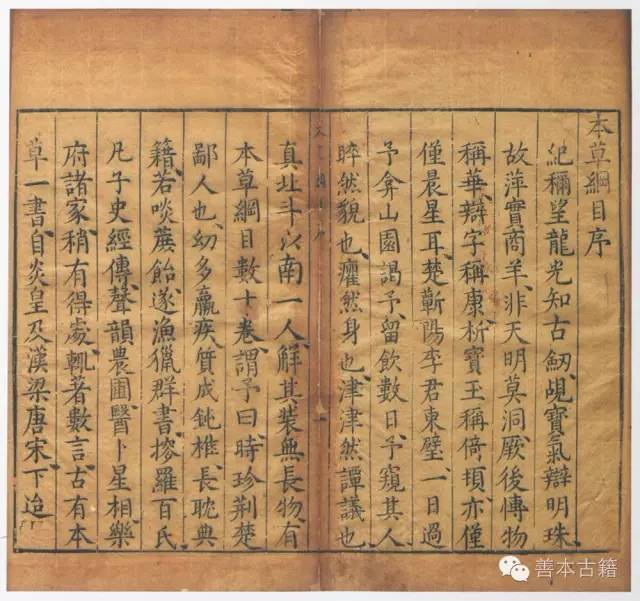 本草綱目序
紀稱望龍光知古劒覘寶氣辯明珠
故萍實商羊非天明莫洞厥後愽物
稱華辯字稱康析寶玉稱倚頓亦僅
僅晨星耳楚蘄陽李君東璧一日過
予弇山園謁予留飲數日予窺其人
睟然貌也癯然身也津津然譚議也
真北斗以南一人觧其装無長物有
本草綱目數十卷謂予曰時珍荆楚
鄙人也幼多羸疾質成鈍椎長耽典
籍若啖蔗飴遂漁獵群書搜羅百氏
凡子史經傳聲韻農圃醫卜星相樂
府諸家稍有得處輒著數言古有本
草一書自炎皇及漢梁唐宋下迨
善本古籍